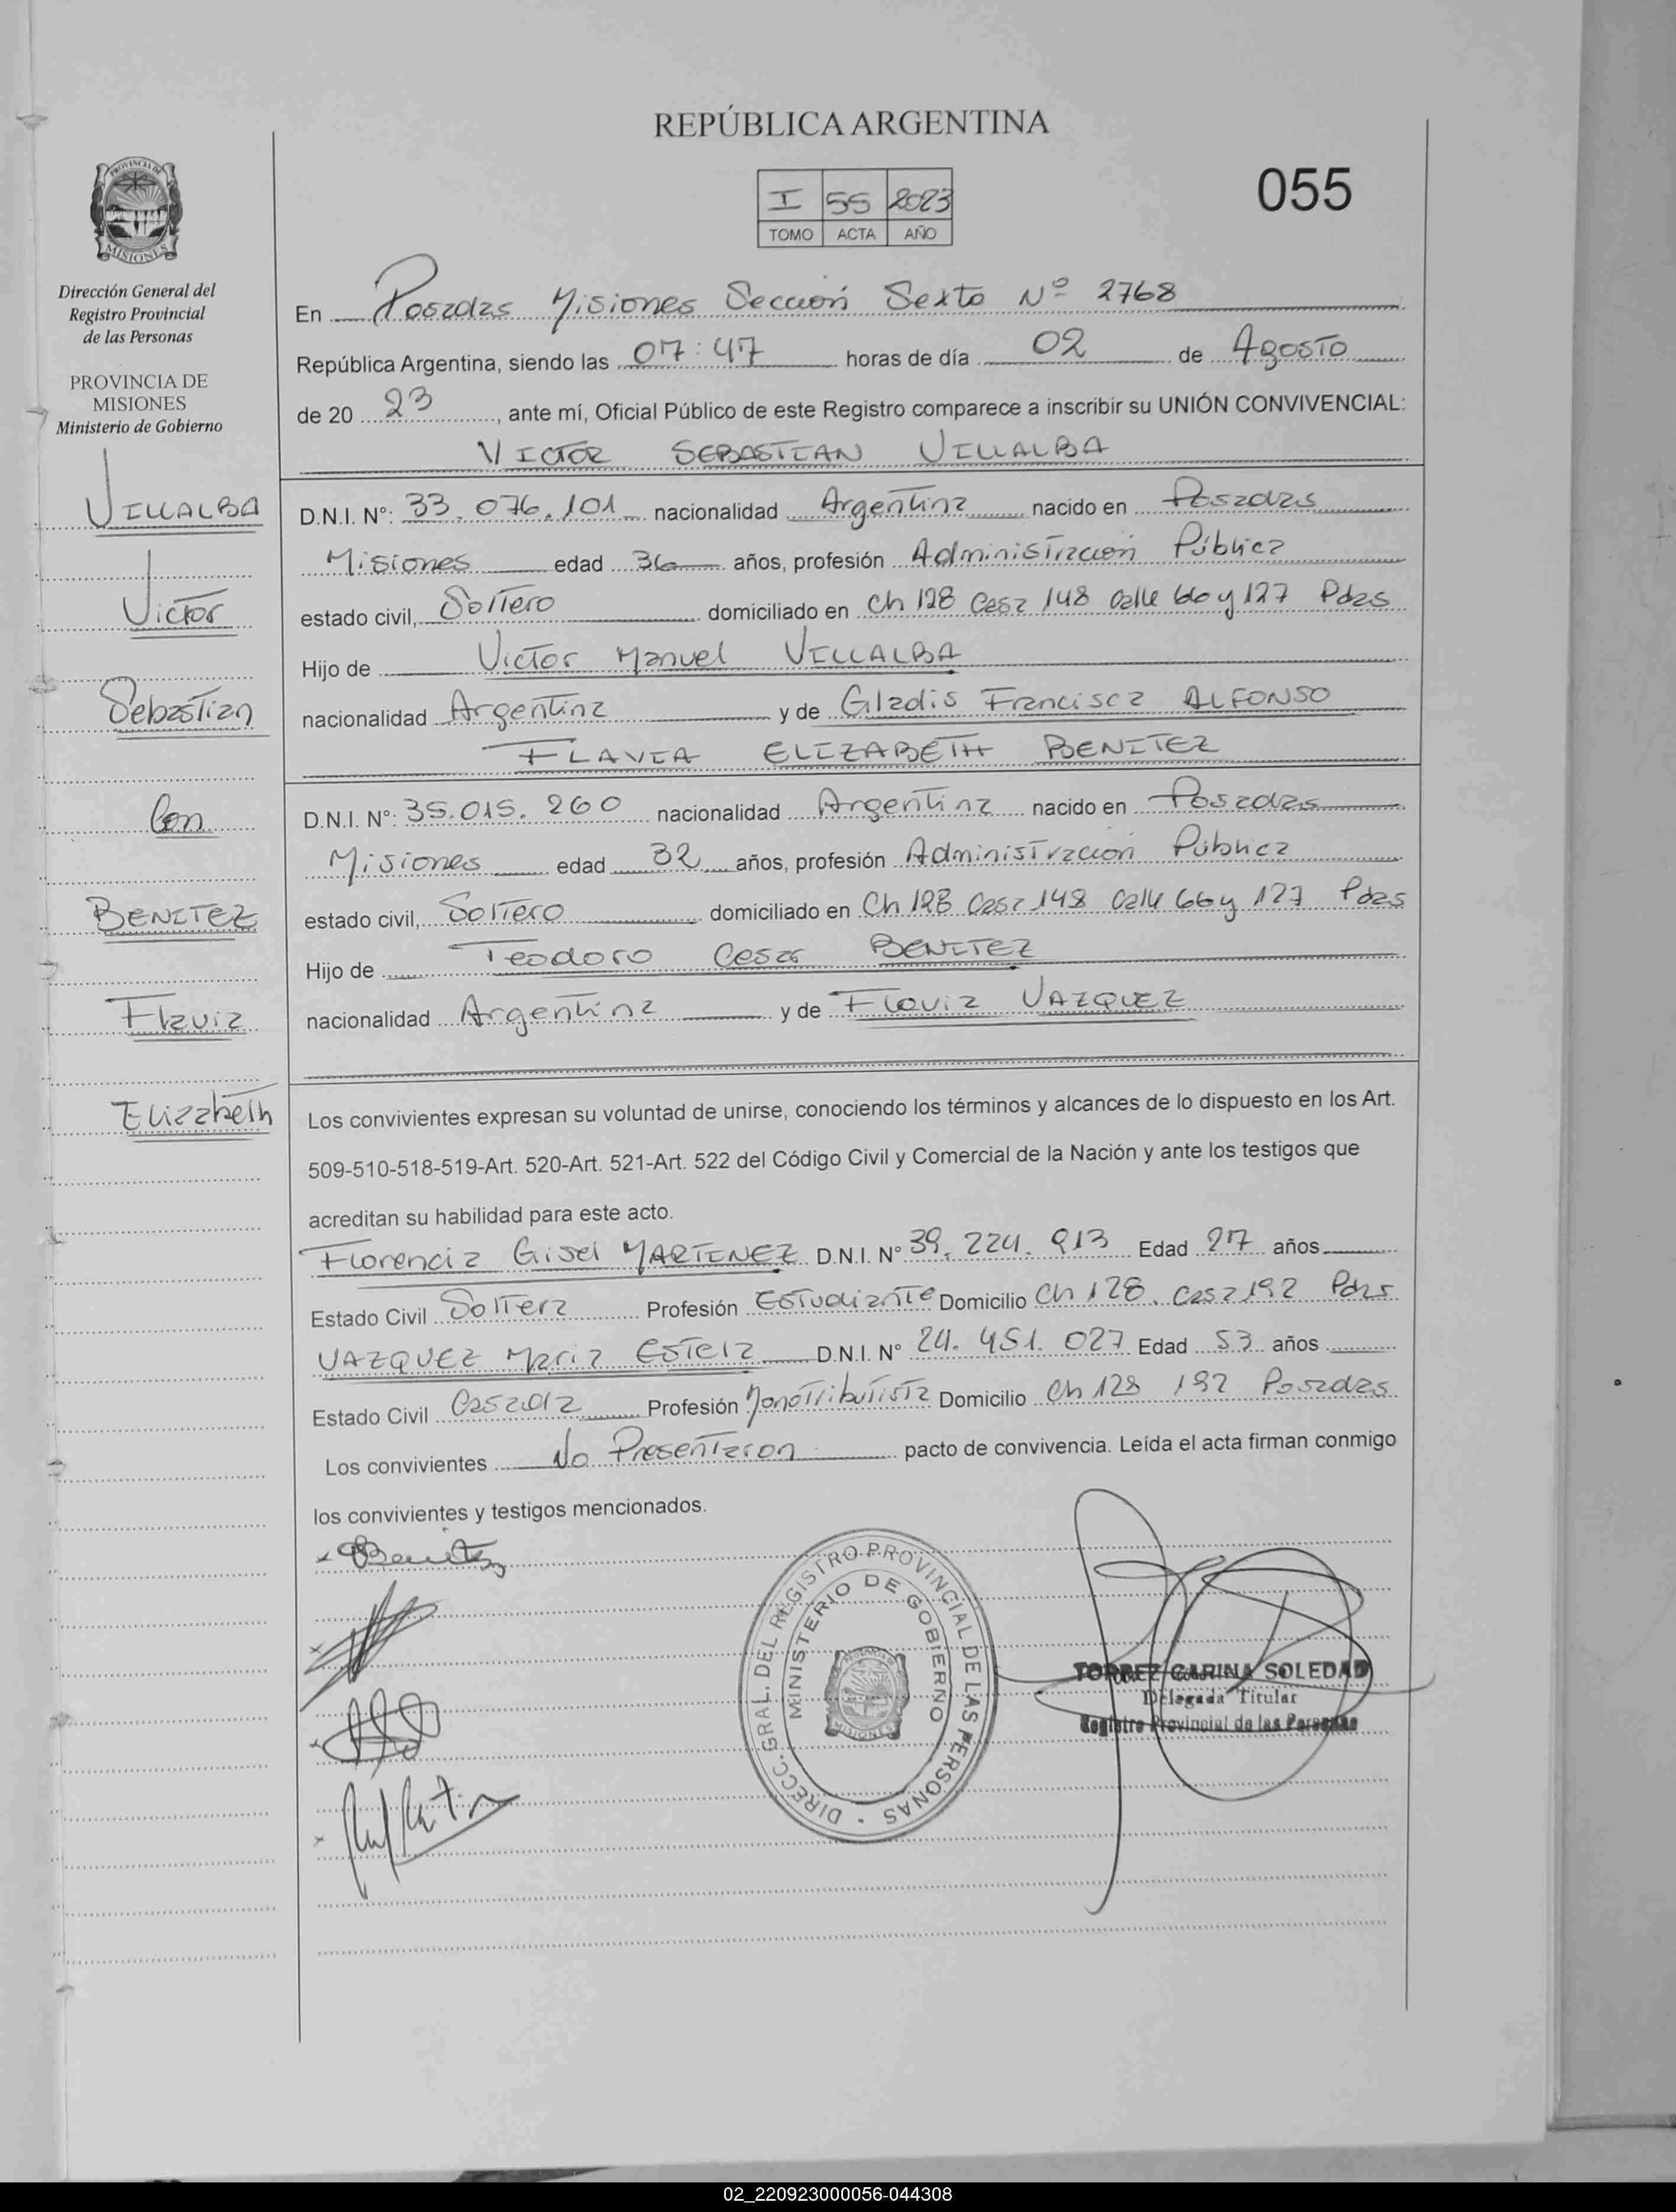 REPÚBLICA ARGENTINA
I 55 2023
TOMO ACTA AÑO
055
PROVINCIA DE
MISIONES
Dirección General del
Registro Provincial
de las Personas
PROVINCIA DE
MISIONES
Ministerio de Gobierno
VILLALBA
Victor
Sebastian
Con
BENITEZ
Flavia
Elizabeth
En Posadas Misiones Sección Sexto Nº 2768
República Argentina, siendo las 07:47 horas de día 02 de Agosto
de 20 23, ante mí, Oficial Público de este Registro comparece a inscribir su UNIÓN CONVIVENCIAL:
VICTOR SEBASTIAN VILLALBA
D.N.I. N°: 33.076.101 nacionalidad Argentina nacido en Posadas
Misiones edad 36 años, profesión Administración Pública
estado civil, Soltero domiciliado en Ch 128 Casa 148 Calle 66 y 127 Pdas
Hijo de Victor Manuel VILLALBA
nacionalidad Argentina y de Gladis Francisca ALFONSO
FLAVIA ELIZABETH BENITEZ
D.N.I. N°: 35.015.260 nacionalidad Argentina nacido en Posadas
Misiones edad 32 años, profesión Administración Pública
estado civil, Soltero domiciliado en Ch 128 Casa 148 Calle 66 y 127 Pdas
Hijo de Teodoro Cesar BENITEZ
nacionalidad Argentina y de Flavia VAZQUEZ
Los convivientes expresan su voluntad de unirse, conociendo los términos y alcances de lo dispuesto en los Art.
509-510-518-519-Art. 520-Art. 521-Art. 522 del Código Civil y Comercial de la Nación y ante los testigos que
acreditan su habilidad para este acto.
Florencia Gisel MARTINEZ D.N.I. N° 39.224.913 Edad 27 años
Estado Civil Soltera Profesión Estudiante Domicilio Ch 128. Casa 192 Pdas
VAZQUEZ Maria Estela D.N.I. N° 24.451.027 Edad 53 años
Estado Civil Casada Profesión Monotributista Domicilio Ch 128 192 Posadas
Los convivientes No Presentaron pacto de convivencia. Leída el acta firman conmigo
los convivientes y testigos mencionados.
Benitez
DIRECC. GRAL. DEL REGISTRO PROVINCIAL DE LAS PERSONAS
MINISTERIO DE GOBIERNO
MISIONES
TORREZ CARINA SOLEDAD
Delegada Titular
Registro Provincial de las Personas
02_220923000056-044308